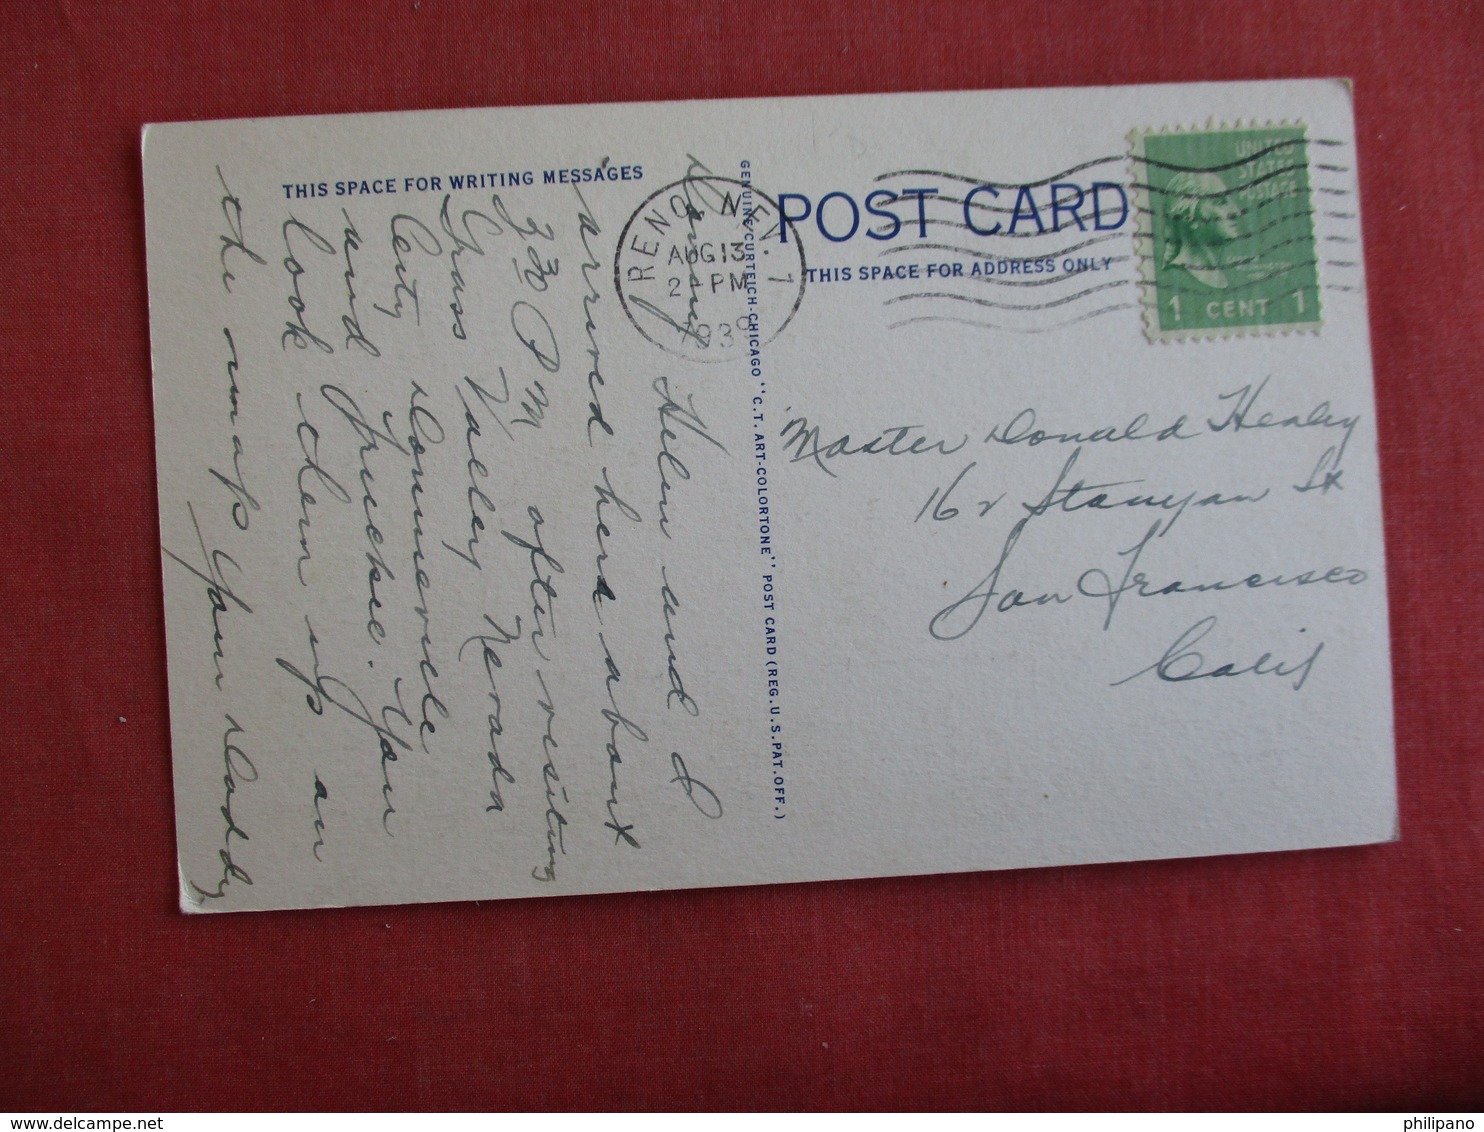 THIS SPACE FOR WRITING MESSAGES
Danny Helen and I
arrived here about
2 30 P M after visiting
Grass Valley Nevada
City Downieville
and Truckee. You
look them up on
the map Your Daddy
GENUINE CURTEICH-CHICAGO "C.T. ART-COLORTONE" POST CARD (REG. U.S. PAT. OFF.)
POST CARD
THIS SPACE FOR ADDRESS ONLY
RENO, NEV. 1
AUG 13
2 - PM
193
UNITED
STATES
POSTAGE
1 CENT 1
Master Donald Healey
162 Stanyan St
San Francisco
Calif
philipano